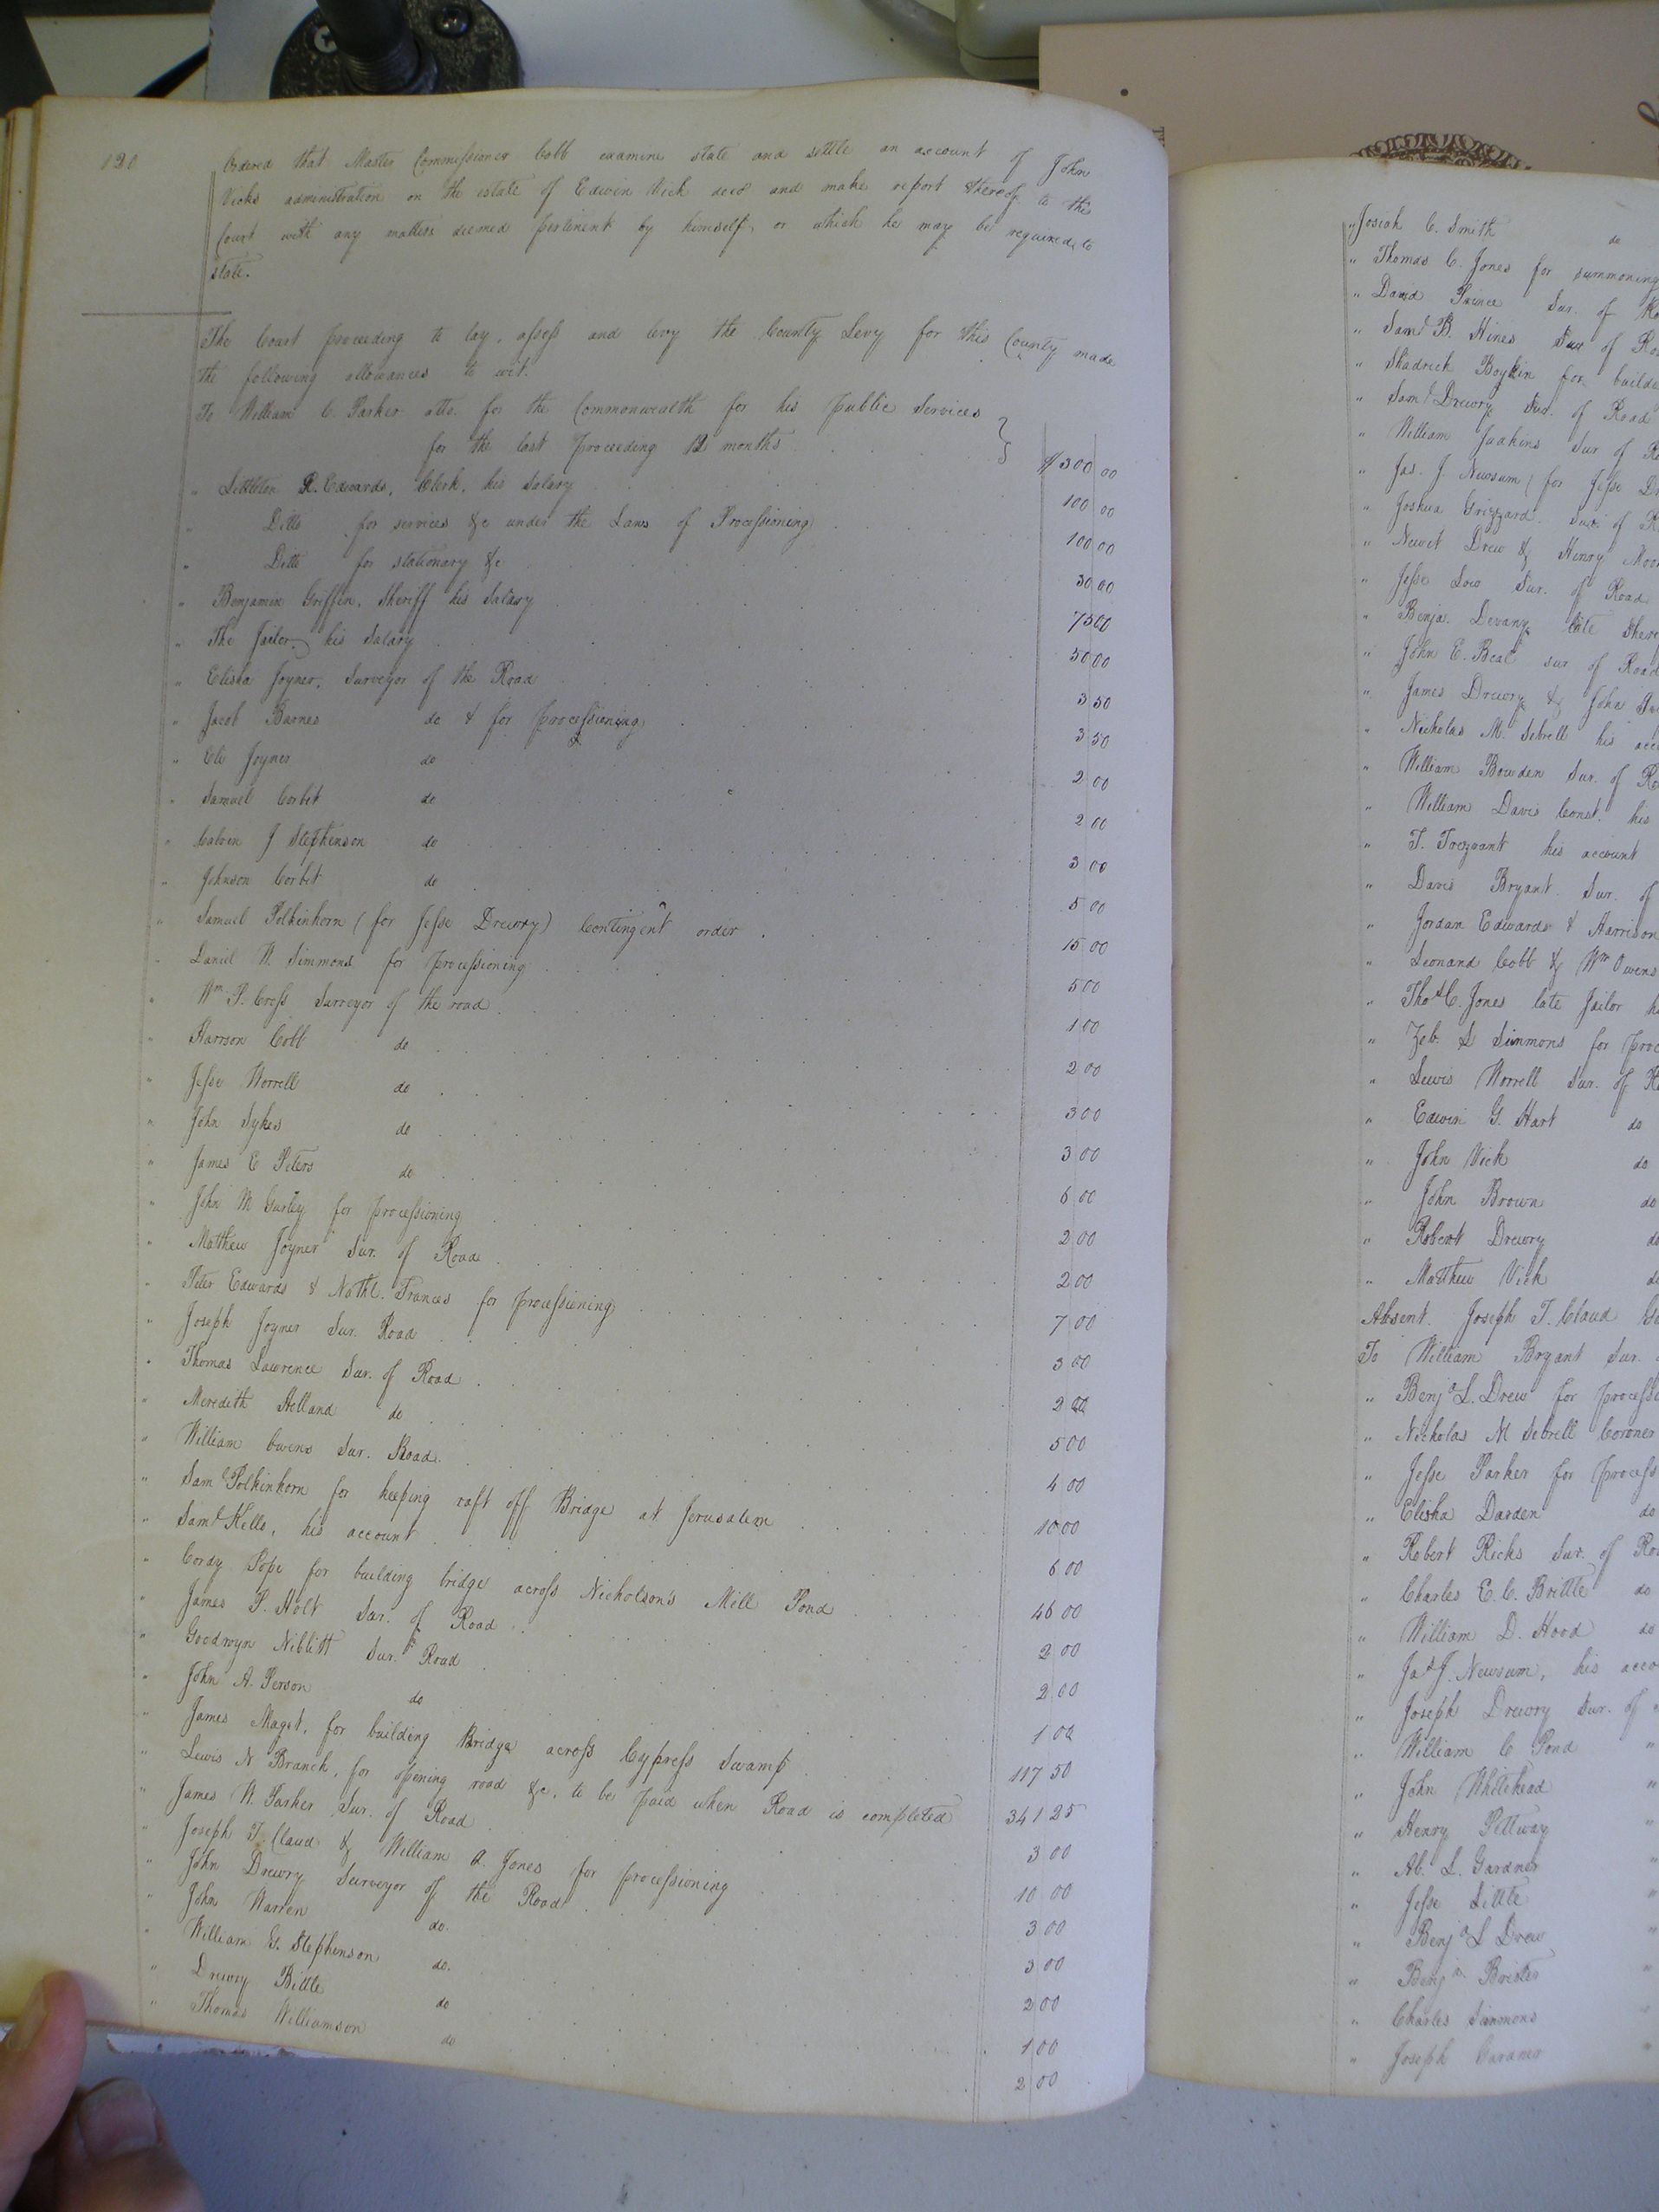 120
Ordered that Master Commissioner Cobb examine state and settle an account of John
Vicks administration on the estate of Edwin Vick decd and make report thereof to the
Court with any matters deemed pertinent by himself, or which he may be required to
state.
The Court proceeding to lay, assess and levy the County Levy for this County made
the following allowances to wit.
To William C. Parker atto. for the Commonwealth for his public services
for the last proceeding 12 months $300 00
" Littleton R. Edwards, Clerk, his salary 100 00
" Ditto for services &c under the Laws of Processioning 100 00
" Ditto for stationary &c 30 00
" Benjamin Griffin, Sheriff his salary 75 00
" The Jailor, his salary 50 00
" Elisha Joyner, Surveyor of the Road 3 50
" Jacob Barnes do & for processioning 3 50
" Eli Joyner do 2 00
" Samuel Corbit do 2 00
" Calvin J Stephenson do 3 00
" Johnson Corbit do 5 00
" Samuel Polkinhorn (for Jesse Drewry) Contingent order 15 00
" Daniel W. Simmons for processioning 5 00
" Wm P. Cross Surveyor of the road 1 00
" Harrson Cobb do 2 00
" Jesse Worrell do 3 00
" John Sykes do 3 00
" James E Peters do 6 00
" John M Gurley for processioning 2 00
" Matthew Joyner Sur. of Road 2 00
" Peter Edwards & Nathl. Frances for processioning 7 00
" Joseph Joyner Sur. Road 3 00
" Thomas Lawrence Sur. of Road 2 00
" Meredith Holland do 5 00
" William Owens Sur. Road 4 00
" Saml Polkinhorn for keeping raft off Bridge at Jerusalem 10 00
" Saml Kello, his account 6 00
" Cordy Pope for building bridge across Nicholson's Mill Pond 46 00
" James P. Holt Sur. of Road 2 00
" Goodwyn Niblitt Sur. Road 2 00
" John A. Person do 1 00
" James Maget, for building Bridge across Cypress Swamp 117 50
" Lewis N Branch, for opening road &c, to be paid when Road is completed 341 25
" James W. Parker Sur. of Road 3 00
" Joseph T. Claud & William A. Jones for processioning 10 00
" John Drewry Surveyor of the Road 3 00
" John Warren do. 3 00
" William G. Stephenson do. 2 00
" Drewry Bittle do 1 00
" Thomas Williamson do 2 00
" Josiah C. Smith do
" Thomas C. Jones for summoning
" David Prince Sur. of
" Saml B. Hines Sur of
" Shadrick Boykin for
" Saml Drewry Sur. of Road
" William Judkins Sur of
" Jas. J. Newsum (for Jesse
" Joshua Grizzard. Sur. of
" Newit Drew & Henry
" Jesse Low Sur. of Road
" Benja. Devany late
" John E. Beal Sur of Road
" James Drewry & John
" Nicholas M. Sebrell his
" William Bowden Sur. of
" William Davis Const. his
" T. Trezvant his account
" Davis Bryant Sur. of
" Jordan Edwards & Harrison
" Leonard Cobb & Wm Owens
" Thos C. Jones late Jailor
" Zeb. S Simmons for
" Lewis Worrell Sur. of
" Edwin G. Hart do
" John Vick do
" John Brown do
" Robert Drewry do
" Matthew Vick do
Absent. Joseph T. Claud
To William Bryant Sur.
" Benja L. Drew for
" Nicholas M Sebrell Coroner
" Jesse Parker for
" Elisha Darden do
" Robert Ricks Sur. of
" Charles E. C. Brittle do
" William D. Hood do
" Jas J. Newsum, his
" Joseph Drewry Sur. of
" William C Pond "
" John Whitehead "
" Henry Pettway "
" Ab. L. Gardner "
" Jesse Little "
" Benja L Drew "
" Benjn Brister "
" Charles Simmons "
" Joseph "